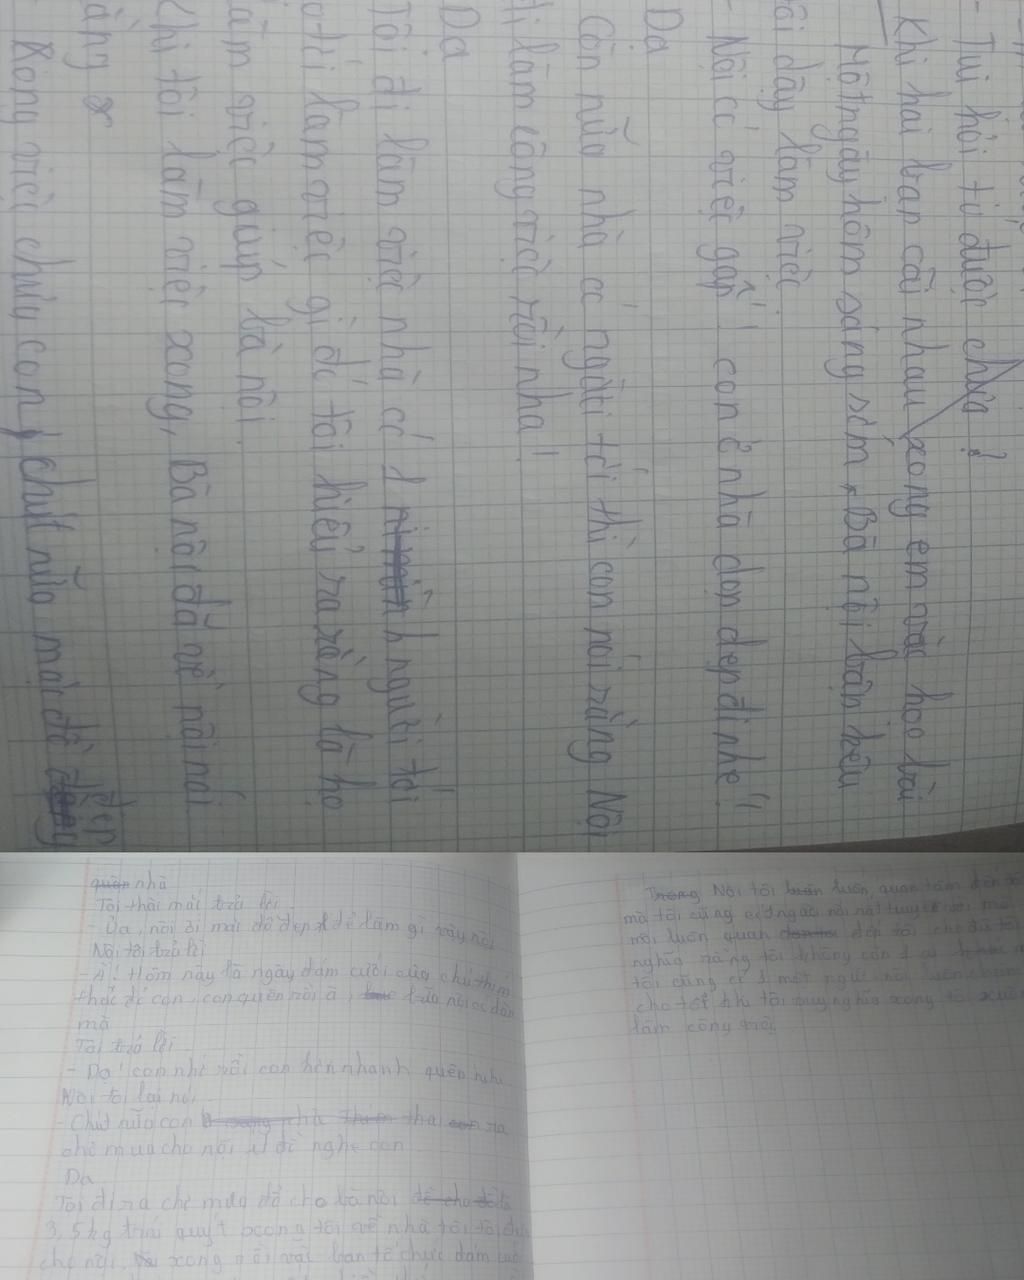 - Tui hỏi tư được chưa?
Khi hai bạn cãi nhau xong em vào học bài
Một ngày hôm sáng sớm, Bà nội bận kêu
tôi dậy làm việc.
- Nội có việc gấp! con ở nhà dọn dẹp đi nhé!
Dạ
Còn nữa nhà có người tới thì con nói rằng Nội
đi làm công việc rồi nha!
Dạ
Tôi đi làm việc nhà có 1 người tới
tới làm việc gì đó tôi hiểu ra rằng là họ
làm việc giúp bà nội
Khi tôi làm việc xong, Bà nội đã về nội nói
rằng
Xong việc chưa con, chút nữa mặc đồ đẹp
quên nhà
Tôi thắc mắc trả lời
- Ủa, nội ơi mặc đồ đẹp để làm gì vậy nội
Nội tôi trả lời
- À! Hôm nay là ngày đám cưới của chú thím
thức đó con, con quên rồi à, nội có dặn
mà
Tôi trả lời
- Dạ! con nhớ rồi con hên nhanh quên nhu
Nội tôi lại nói
- Chút nữa con ra
chợ mua cho nội ít đồ nghe con
Dạ
Tôi đi ra chợ mua đồ cho bà nội
3,5kg trái quýt xong tôi về nhà tôi tôi đưa
cho nội, xong rồi vào bàn tổ chức đám cưới
Nội tôi luôn, quan tâm đến
mà tôi cũng có người nội nột tuyệt vời
nội luôn quan đến tôi cho dù tôi
nghĩa rằng tôi không còn 1 ai
tôi cũng có 1 một người nội luôn chăm
cho tôi khi tôi suy nghĩa xong tôi xuống
làm công việc